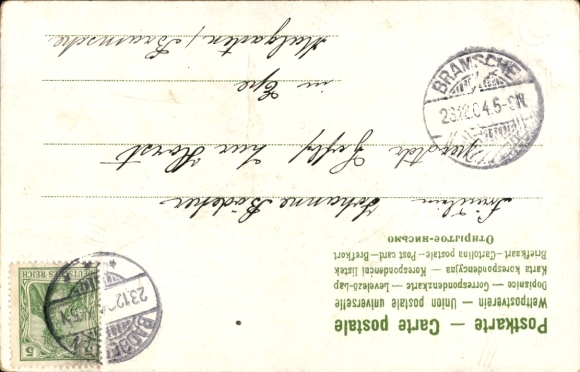 Postkarte — Carte postale
Weltpostverein — Union postale universelle
Dopisnice — Correspondenzkarte — Levelező-Lap
Karta korespondencyjna — Korespondenční lístek
Briefkaart — Cartolina postale — Post card — Brefkort
Открытое-письмо
Fräulein
Johanne Bödeker
zur Horst
in Epe
/ Bramsche
BRAMSCHE
23.12.04.5-6N.
DEUTSCHES REICH
5
23.12.